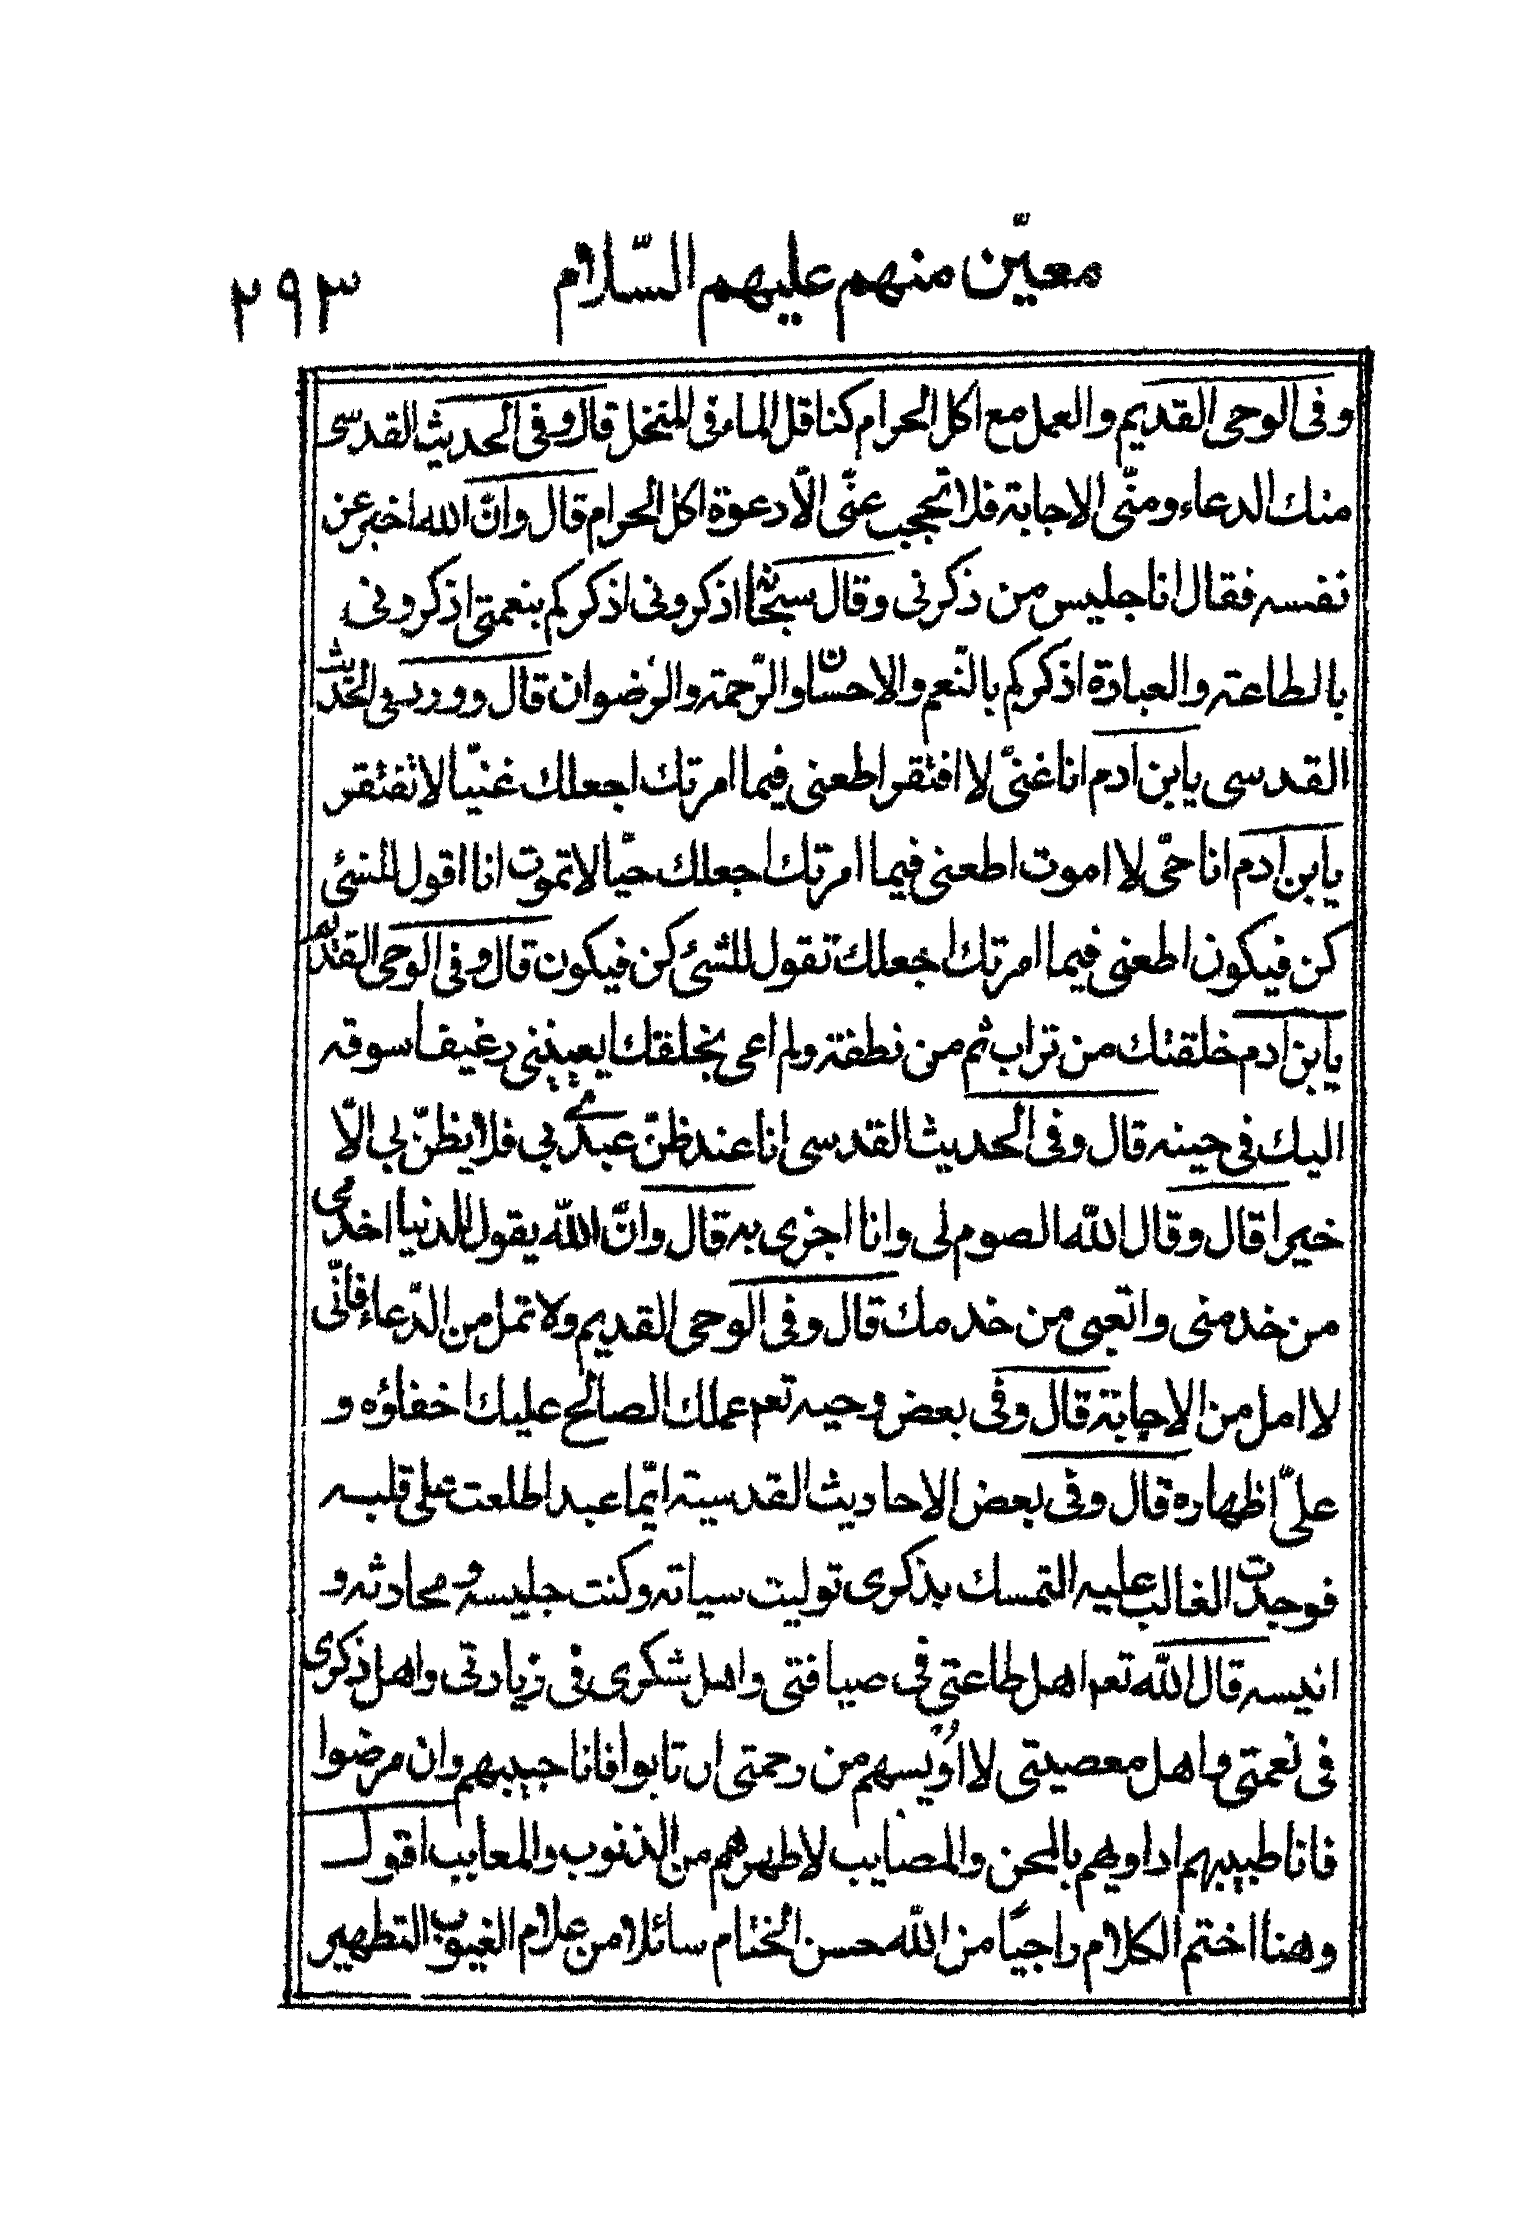 معيّن منهم عليهم السّلام ٢٩٣
وفى الوحى القديم والعمل مع اكل الحرام كناقل الماء فى المنخل قال وفى الحديث القدسى
منك الدعاء ومنّى الاجابة فلا تحجب عنّى الّا دعوة اكل الحرام قال وانّ الله اخبر عن
نفسه فقال انا جليس من ذكرنى وقال سبحانه اذكرونى اذكركم بنعمتى اذكرونى
بالطاعته والعبادة اذكركم بالنّعم والاحسان والرّحمة والرّضوان قال وورد فى الحديث
القدسى يابن ادم انا غنىّ لا افتقر اطعنى فيما امرتك اجعلك غنيّا لا تفتقر
يابن ادم انا حىّ لا اموت اطعنى فيما امرتك اجعلك حيّا لا تموت انا اقول للشىء
كن فيكون اطعنى فيما امرتك اجعلك تقول للشىء كن فيكون قال وفى الوحى القديم
يابن ادم خلقتك من تراب ثم من نطفة ولم اعى بخلقك ايعيينى رغيف اسوقه
اليك فى حينه قال وفى الحديث القدسى انا عند ظنّ عبدى بى فلا يظنّ بى الّا
خيرا قال وقال الله الصوم لى وانا اجزى به قال وانّ الله يقول للدنيا اخدمى
من خدمنى واتعبى من خدمك قال وفى الوحى القديم ولا تمل من الدّعاء فانّى
لا امل من الاجابة قال وفى بعض وحيه تعم عملك الصالح عليك اخفاؤه و
علىّ اظهاره قال وفى بعض الاحاديث القدسية ايّما عبد اطلعت على قلبه
فوجدت الغالب عليه التمسك بذكرى توليت سياته وكنت جليسه ومحادثه و
انيسه قال الله تعم اهل طاعتى فى ضيافتى واهل شكرى فى زيادتى واهل ذكرى
فى نعمتى واهل معصيتى لا اؤيسهم من رحمتى ان تابوا فانا حبيبهم وان مرضوا
فانا طبيبهم اداويهم بالمحن والمصايب لاطهرهم من الذنوب والمعايب اقول
وهنا اختم الكلام راجيًا من الله حسن الختام سائلا من علام الغيوب التطهير